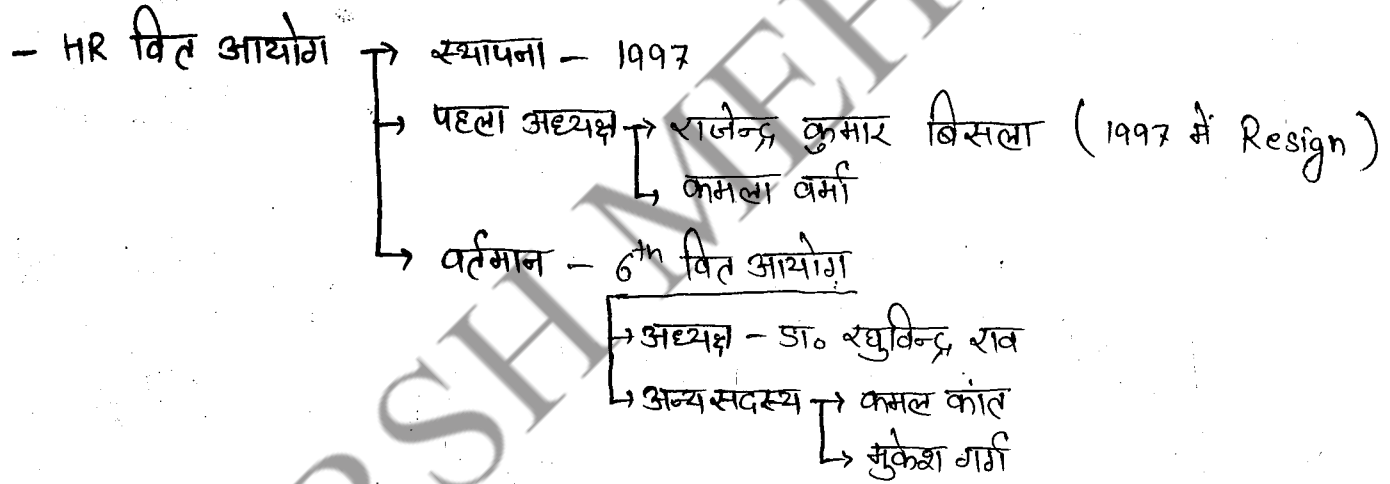 - HR वित आयोग → स्थापना - 1997
→ पहला अध्यक्ष → राजेन्द्र कुमार बिसला (1997 में Resign)
→ कमला वर्मा
→ वर्तमान - 6th वित आयोग
→ अध्यक्ष - डा० रघुविन्द्र राव
→ अन्य सदस्य → कमल कांत
→ मुकेश गर्ग
RSH MEH